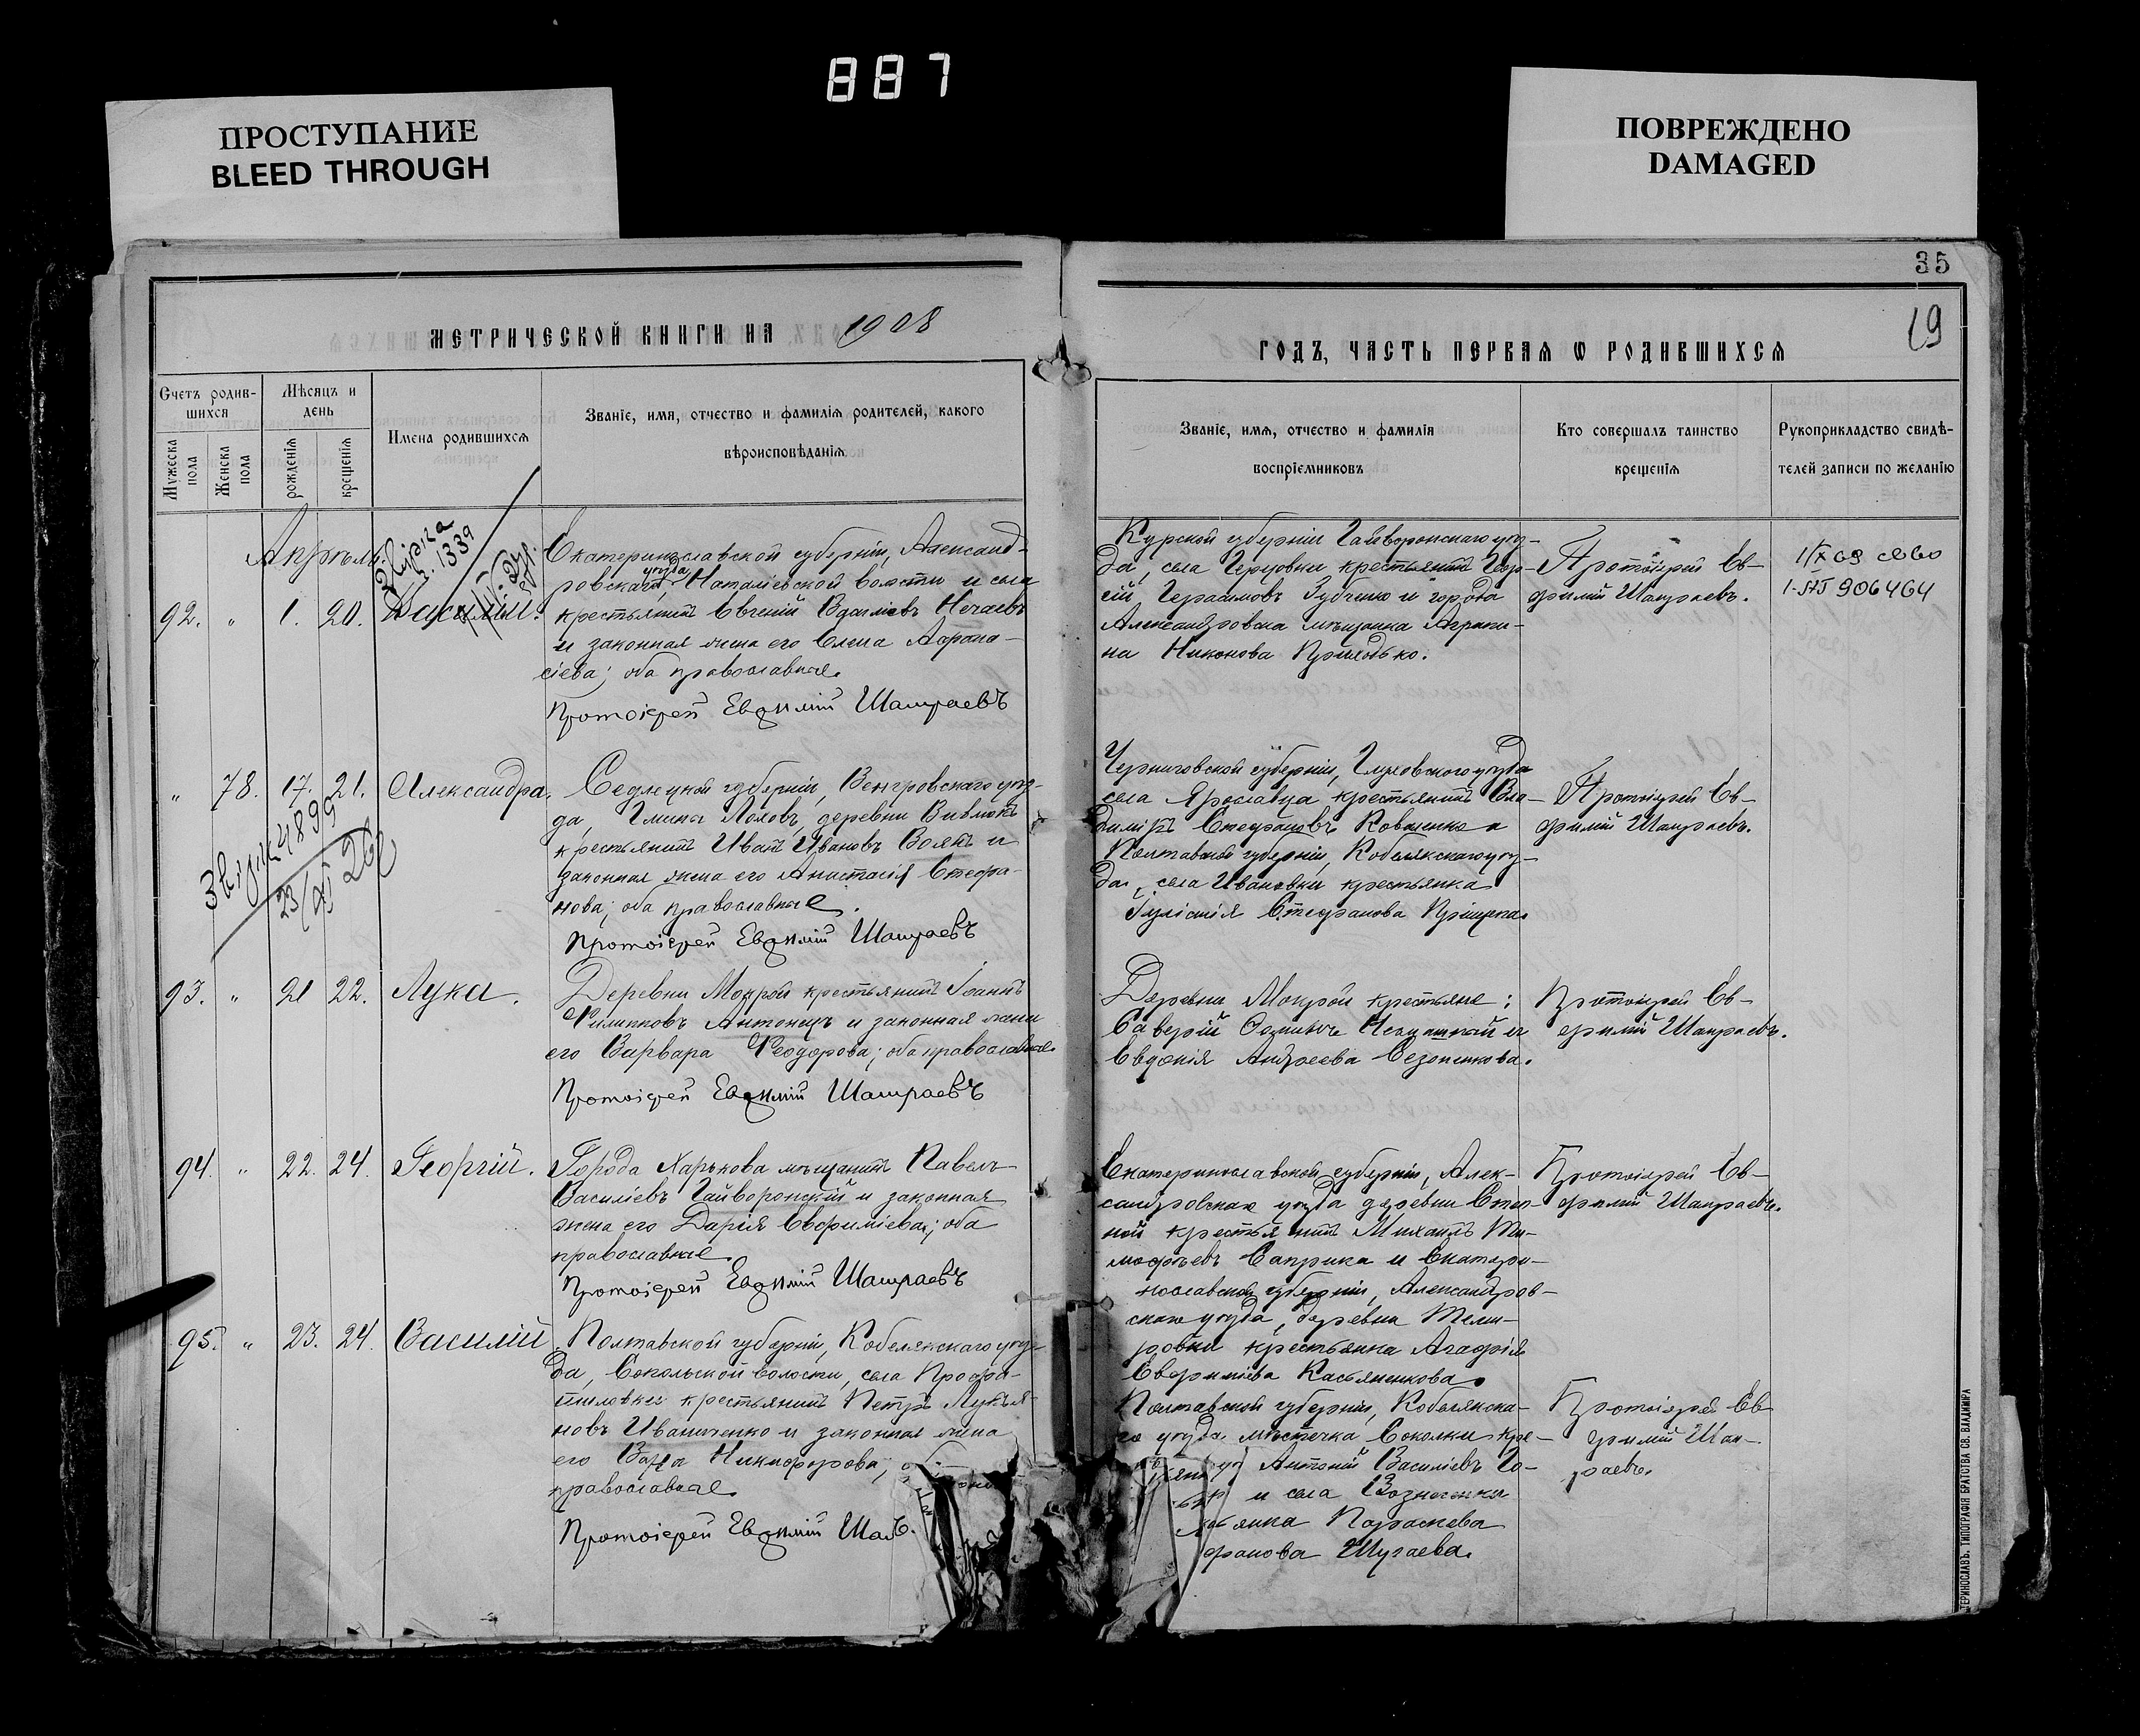 887
ПРОСТУПАНИЕ
BLEED THROUGH
ПОВРЕЖДЕНО
DAMAGED
35
19
МЕТРИЧЕСКОЙ КНИГИ НА 1908
ГОДЪ, ЧАСТЬ ПЕРВАЯ Ѡ РОДИВШИХСЯ
Счетъ родив-
шихся
Мужеска
пола
Женска
пола
Мѣсяцъ и
день
рожденїя
крещенїя
Имена родившихся
Званїе, имя, отчество и фамилїя родителей, какого
вѣроисповѣданїя
Званїе, имя, отчество и фамилїя
воспрїемниковъ
Кто совершалъ таинство
крещенїя
Рукоприкладство свидѣ-
телей записи по желанїю
Апрѣль.
1339
92. " 1. 20. Василій.
Екатеринославской губерніи, Александ-
ровскаго уѣзда, Наталіевской волости и села
крестьянинъ Евгеній Нечаевъ
и законная жена его Елена Аѳана-
сіева; оба православные.
Протоіерей Евѳимій Шамраевъ
Курской губерніи Гайворонскаго уѣз-
да, села крестьянинъ Геор-
гій Герасимовъ Зубченко и города
Александровска мѣщанка Агрипи-
на Никонова Приходько.
Протоіерей Ев-
фимій Шамраевъ.
906464
" 78. 17. 21. Александра.
4899
Седлецкой губерніи, Венгровскаго уѣз-
да, Гмина Ляховъ, деревни
крестьянинъ Иванъ Ивановъ Волкъ и
законная жена его Анастасія Стефа-
нова; оба православные.
Протоіерей Евѳимій Шамраевъ
Черниговской губерніи, Глуховскаго уѣзда
села Ярославца крестьянинъ Вла-
диміръ Стефановъ Коваленко и
Полтавской губерніи, Кобелякскаго уѣз-
да, села Ивановки крестьянка
Іуліанія Стефанова
Протоіерей Ев-
фимій Шамраевъ.
93. " 21 22. Лука.
Деревни Мокрой крестьянинъ Іоаннъ
Филипповъ Антонецъ и законная жена
его Варвара Ѳеодорова; оба православные.
Протоіерей Евѳимій Шамраевъ
Деревни Мокрой крестьяне:
Саверій и
Евдокія Андреева
Протоіерей Ев-
фимій Шамраевъ.
94. " 22. 24. Георгій.
Города Харькова мѣщанинъ Павелъ
Василіевъ Гайворонскій и законная
жена его Дарія Евфиміева; оба
православные
Протоіерей Евѳимій Шамраевъ
Екатеринославской губерніи, Алек-
сандровскаго уѣзда деревни Степ-
ной крестьянинъ Михаилъ Ти-
моѳѣевъ Саприка и Екатери-
нославской губерніи, Александров-
скаго уѣзда, деревни
крестьянка Агафія
Евфиміева Касьяненкова.
Протоіерей Ев-
фимій Шамраевъ.
95. " 23. 24. Василій
Полтавской губерніи, Кобелякскаго уѣз-
да, Сокольской волости, села
крестьянинъ Петръ Лукья-
новъ Иваниченко и законная жена
его Никифорова;
православные
Протоіерей Евѳимій
Полтавской губерніи, Кобелякска-
го уѣзда, мѣстечка Соколки кре-
Антоній Василіевъ
и села
Параскева
Шугаева.
Протоіерей Ев-
фимій Шам-
раевъ.
ТИПОГРАФІЯ БРАТСТВА СВ. ВЛАДИМІРА